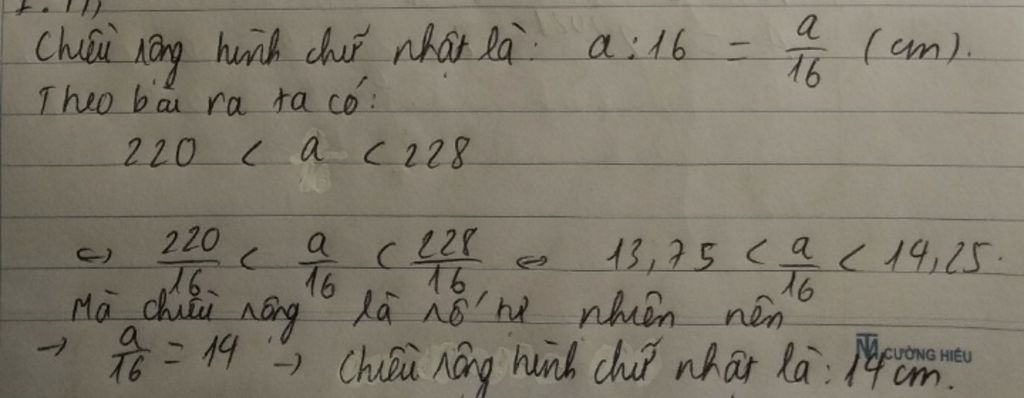 Chiều rộng hình chữ nhật là: a : 16 = a/16 (cm).
Theo bài ra ta có:
220 < a < 228
⇔ 220/16 < a/16 < 228/16 ⇔ 13,75 < a/16 < 14,25.
Mà chiều rộng là số tự nhiên nên
→ a/16 = 14 → Chiều rộng hình chữ nhật là: 14 cm.
CƯỜNG HIẾU